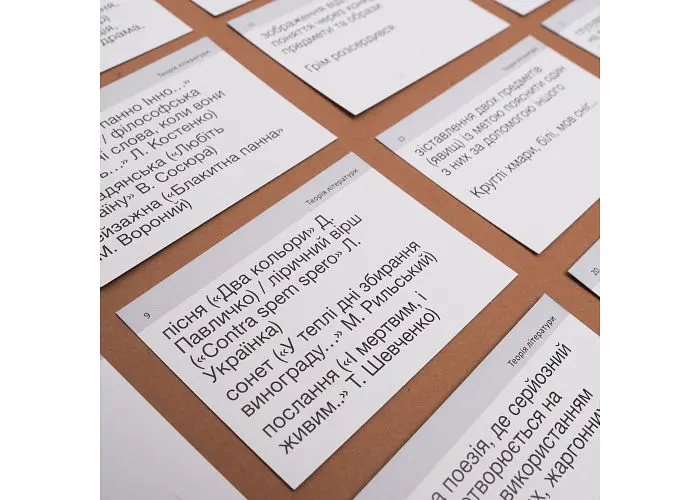 драма,
12
поняття через конк
предмети та образи
Грім розсердився
Теорія літератури
панно Інно…"
/ філософська
і слова, коли вони
ь…» Л. Костенко)
адянська («Любіть
аїну» В. Сосюра)
ейзажна («Блакитна панна»
М. Вороний)
13
зіставлення двох предметів
(явищ) із метою пояснити один
з них за допомогою іншого
Круглі хмари, білі, мов сніг...
9
Теорія літератури
пісня («Два кольори» Д.
Павличко) / ліричний вірш
(«Contra spem spero» Л.
Українка)
сонет («У теплі дні збирання
винограду...» М. Рильський)
послання («І мертвим, і
живим..» Т. Шевченко)
20
Теорія літератури
а поезія, де серйозний
творюється на
використанням
х, жаргонних